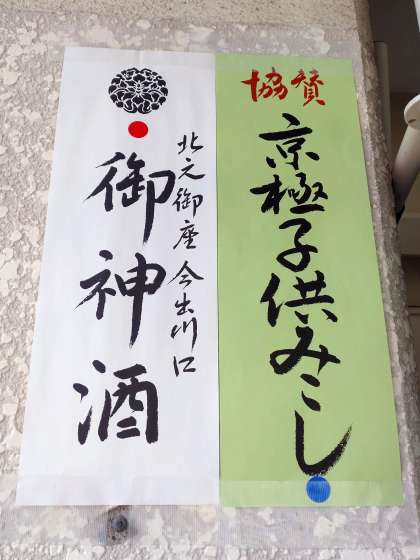 協賛
京極子供みこし
北之御座 今出川口
御神酒